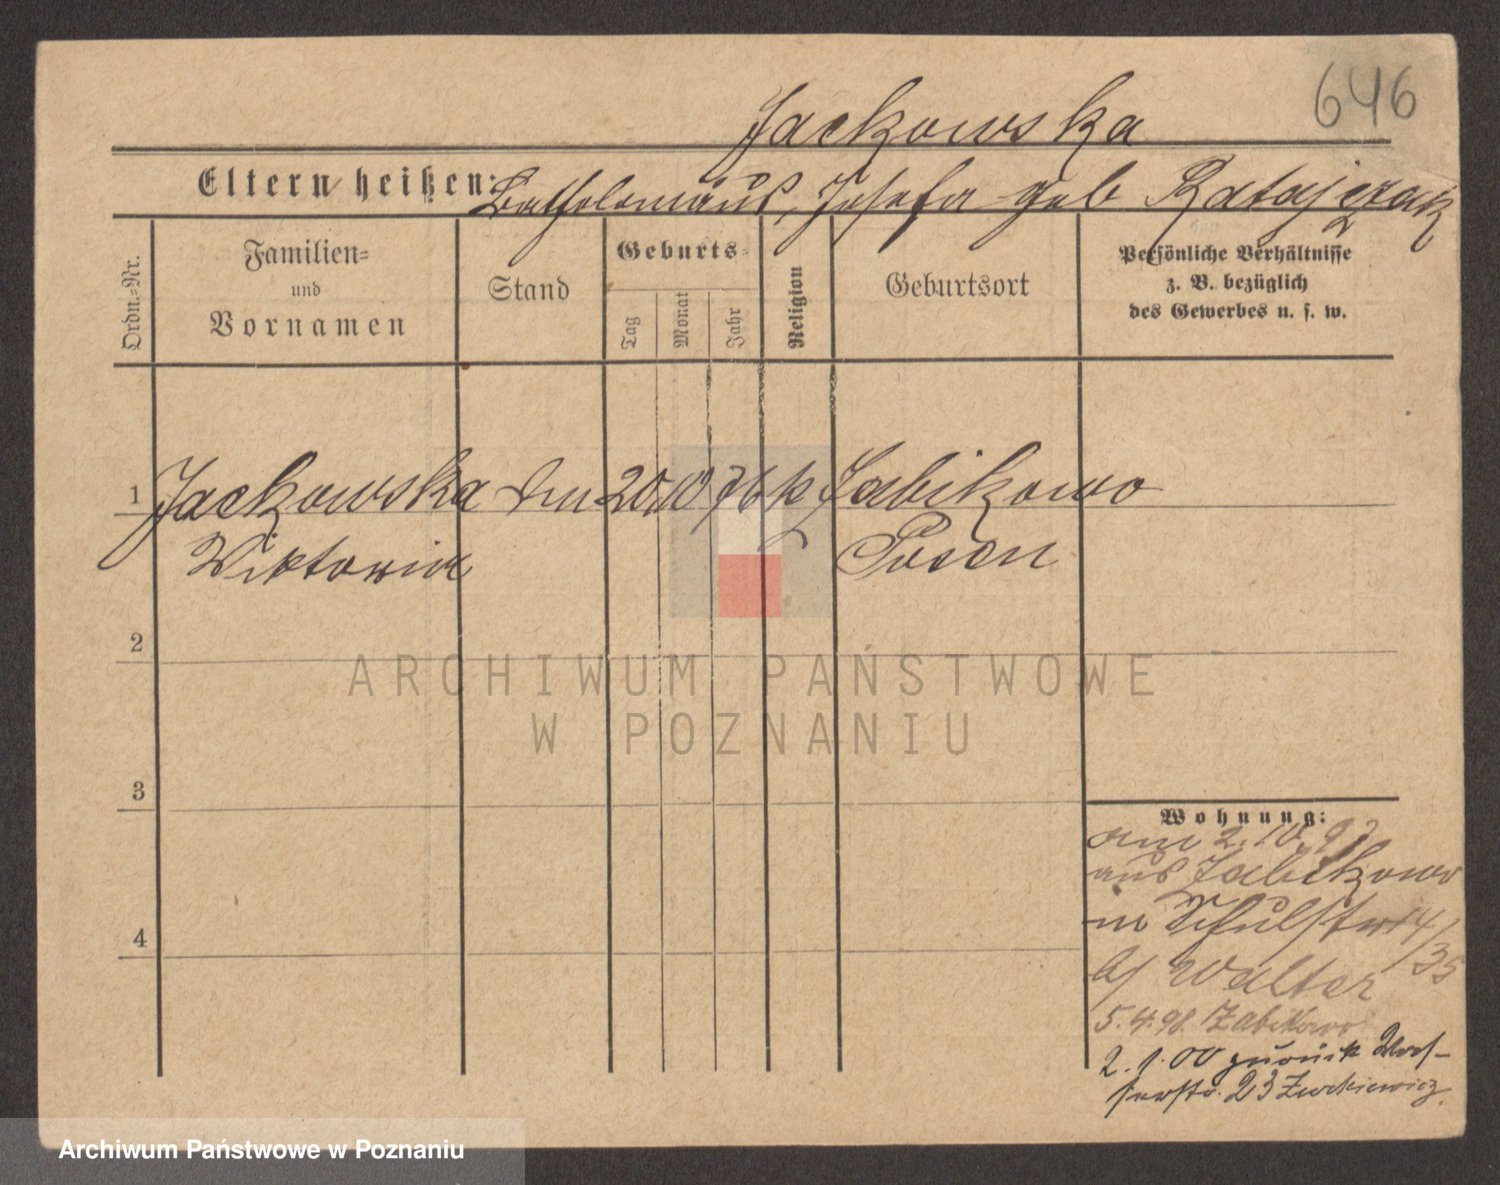 646
Jackowska
Eltern heißen: Bartholomäus, Josefa geb Ratajczak
Ordn.-Nr.
Familien-
und
Vornamen
Stand
Geburts-
Tag
Monat
Jahr
Religion
Geburtsort
Persönliche Verhältnisse
z. B. bezüglich
des Gewerbes u. s. w.
1 Jackowska 20 10 76 k Zabikowo
Wiktoria Posen
2
3
4
Wohnung:
am 2.10.97
aus Zabikowo
in Schulstr 14/35
b/ Walter
5.4.98. Zabikowo
2.1.00 zurück Was-
serstr. 23 Zurkiewicz.
ARCHIWUM PAŃSTWOWE
W POZNANIU
Archiwum Państwowe w Poznaniu